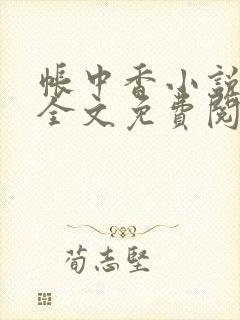 帳中香小說
全文免費閱
荀志堅